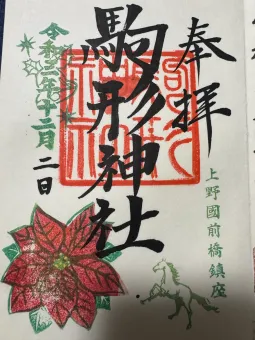 奉拝
駒形神社
上野國前橋鎮座
令和三年十二月
二日